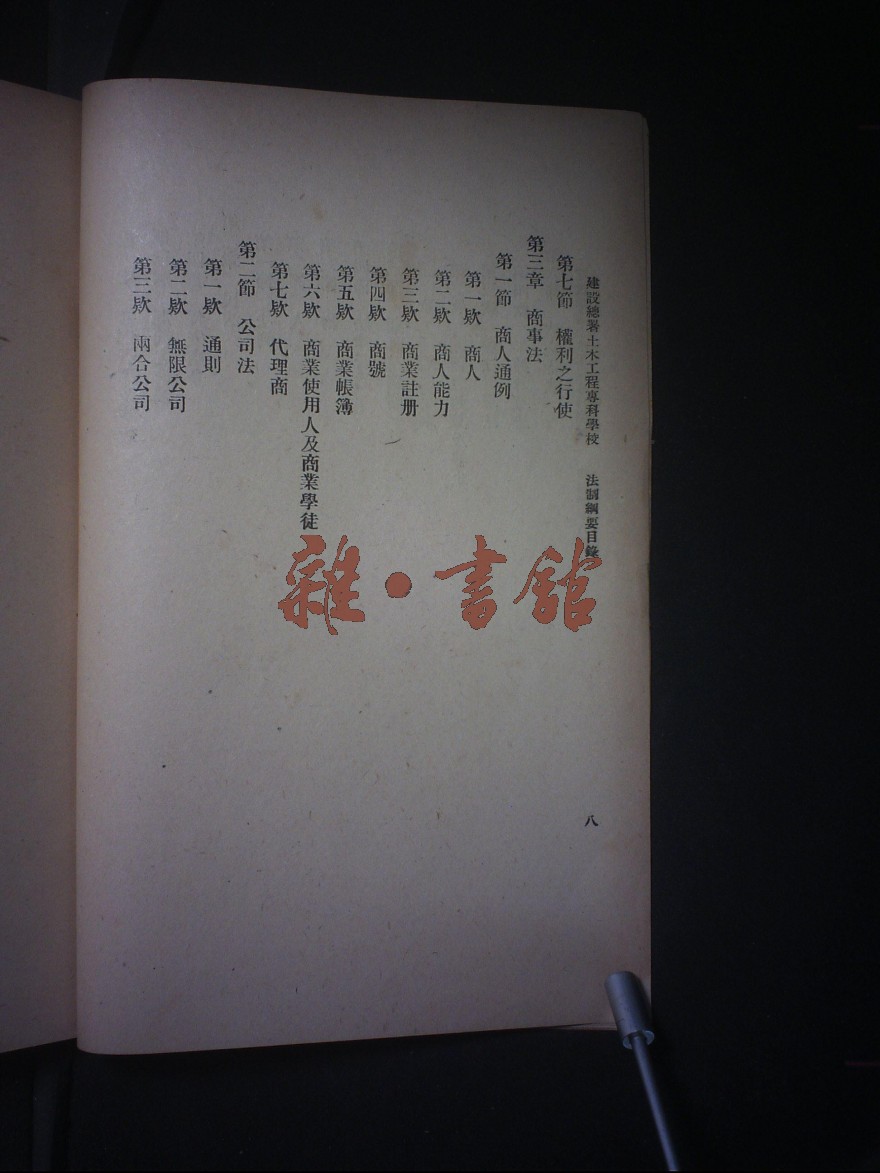 建設總署土木工程專科學校　法制綱要目錄
八
第七節　權利之行使
第三章　商事法
第一節　商人通例
第一欵　商人
第二欵　商人能力
第三欵　商業註册
第四欵　商號
第五欵　商業帳簿
第六欵　商業使用人及商業學徒
第七欵　代理商
第二節　公司法
第一欵　通則
第二欵　無限公司
第三欵　兩合公司
雜·書館